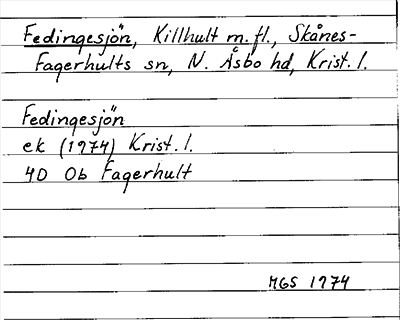 Fedingesjön, Killhult m.fl., Skånes-
Fagerhults sn, N. Åsbo hd, Krist. l.
Fedingesjön
ek (1974) Krist. l.
4D Ob Fagerhult
MGS 1974